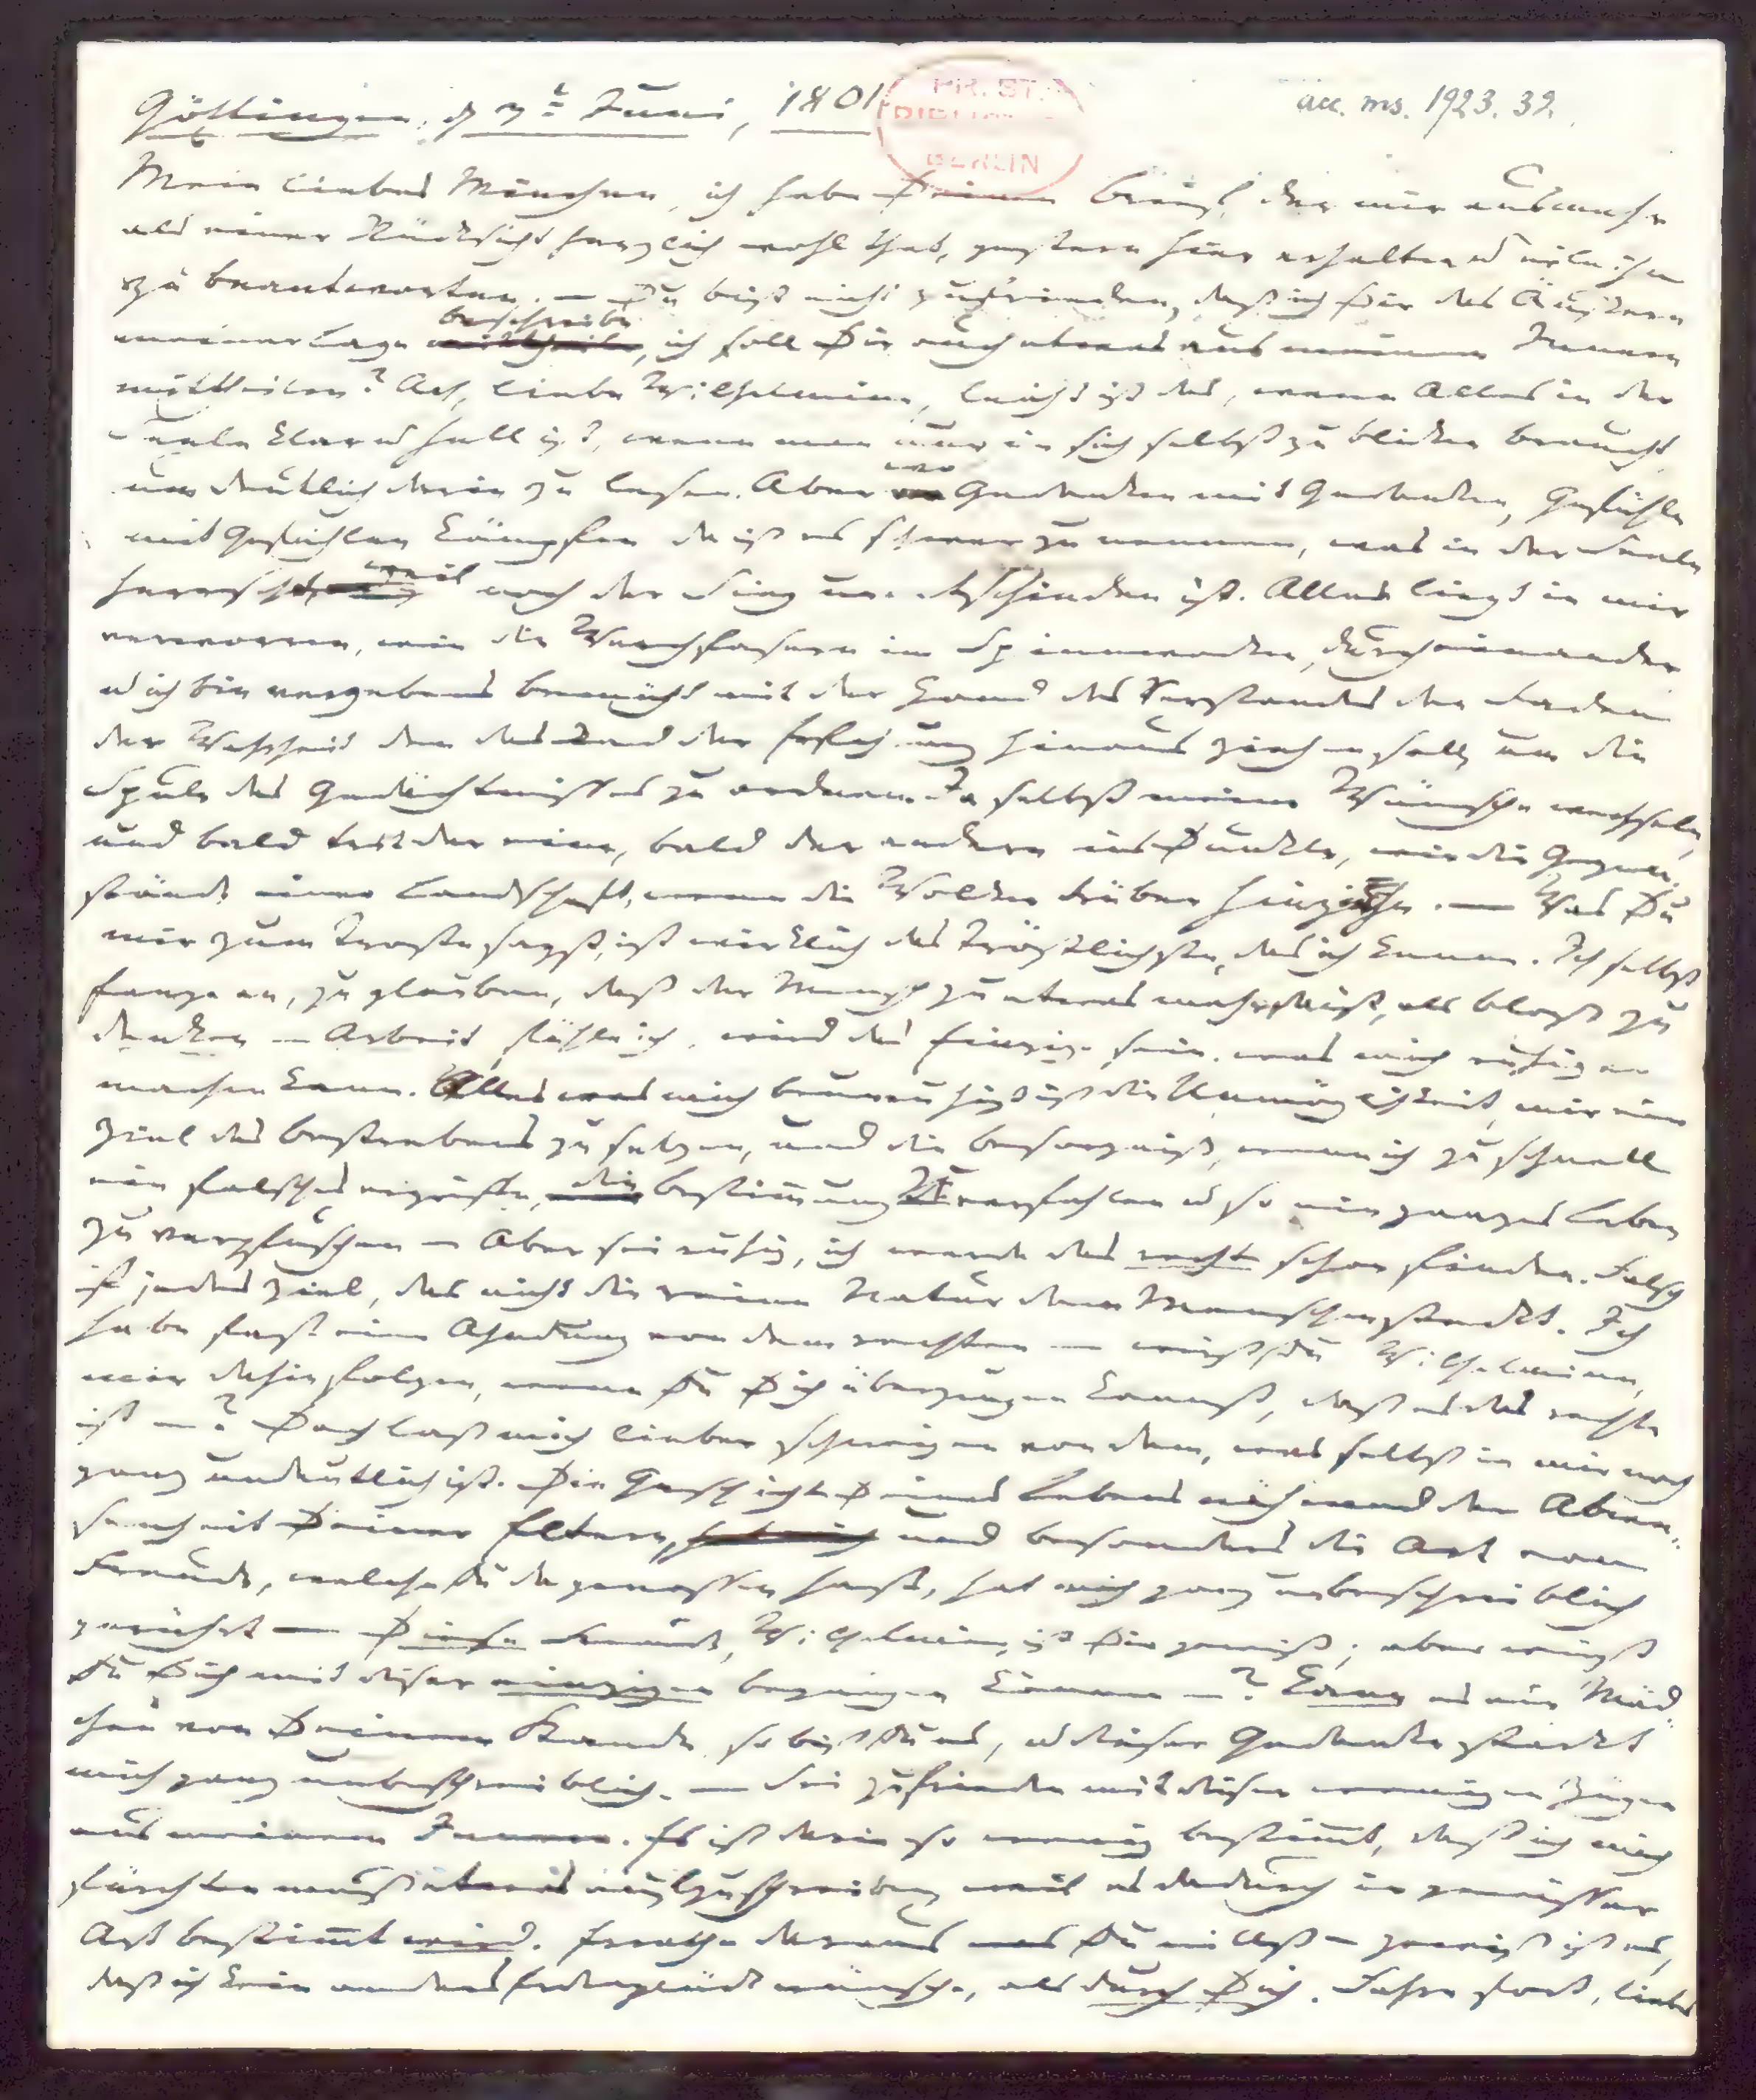 Göttingen, d 3t Juni, 1801
PR. ST.
BERLIN
acc. ms. 1923. 39.
Mein liebes Minchen, ich habe Deinen Brief, der mir aus mehr
als einer Rücksicht herzlich wohl that, gestern hier erhalten u eile ihn
zu beantworten. — Du bist nicht zufrieden, daß ich Dir das Äußere
beschreibe
meiner Lage mittheile, ich soll Dir auch etwas aus meinem Innern
mittheilen? Ach, liebe Wilhelmine, leicht ist das, wenn Alles in der
Seele klar u hell ist, wenn man nur in sich selbst zu blicken braucht
wo
um deutlich darin zu lesen. Aber Gedanken mit Gedanken, Gefühle
mit Gefühlen kämpfen da ist es schwer zu nennen, was in der Seele
herrscht weil noch der Sieg unentschieden ist. Alles liegt in mir
verworren, wie die Werchfasern im Spinnrocken, durcheinander
u ich bin vergebens bemüht mit der Hand des Verstandes den Faden
der Wahrheit den das Rad der Erfahrung hinaus ziehen soll, um die
Spule des Gedächtnisses zu ordnen. Ja selbst meine Wünsche wechseln,
und bald tritt der eine, bald der andere ins Dunkle, wie die Gegen-
stände einer Landschaft, wenn die Wolken drüber hinziehn. — Was Du
mir zum Troste sagst, ist wirklich das Tröstlichste, das ich kenne. Ich selbst
fange an, zu glauben, daß der Mensch zu etwas mehr da ist, als bloß zu
denken — Arbeit, fühle ich, wird das Einzige sein, was mich ruhiger
machen kann. Alles was mich beunruhigt ist die Unmöglichkeit, mir ein
Ziel des Bestrebens zu setzen, und die Besorgniß, wenn ich zu schnell
ein falsches ergriffe, die Bestimmung zu verfehlen u so ein ganzes Leben
zu verpfuschen — Aber sei ruhig, ich werde das rechte schon finden. Falsch
ist jedes Ziel, das nicht die reine Natur dem Menschen steckt. Ich
habe fast eine Ahndung von dem rechten — wirst Du Wilhelmine,
mir dahin folgen, wenn Du Dich überzeugen kannst, daß es das rechte
ist —? Doch laß mich lieber schweigen von dem, was selbst in mir noch
ganz undeutlich ist. Die Geschichte Deines Lebens während der Abwe-
senheit Deiner Eltern, und besonders die Art von
Freude, welche Du da genossen hast, hat mich ganz unbeschreiblich
gerührt — Diese Freude, Wilhelmine, ist Dir gewiß; aber wirst
Du Dich mit dieser einzigen begnügen können —? Kann es ein Mäd-
chen von Deinem Stande, so bist Du es, u dieser Gedanke stärkt
mich ganz unbeschreiblich. — Sei zufrieden mit diesen wenigen Zügen
aus meinem Innern. Es ist darin so wenig bestimmt, daß ich mich
fürchten muß etwas aufzuschreiben, weil es dadurch in gewisser
Art bestimmt wird. Errathe daraus was Du willst — gewiß ist es,
daß ich kein andres Erdenglück wünsche, als durch Dich. Fahre fort, liebes